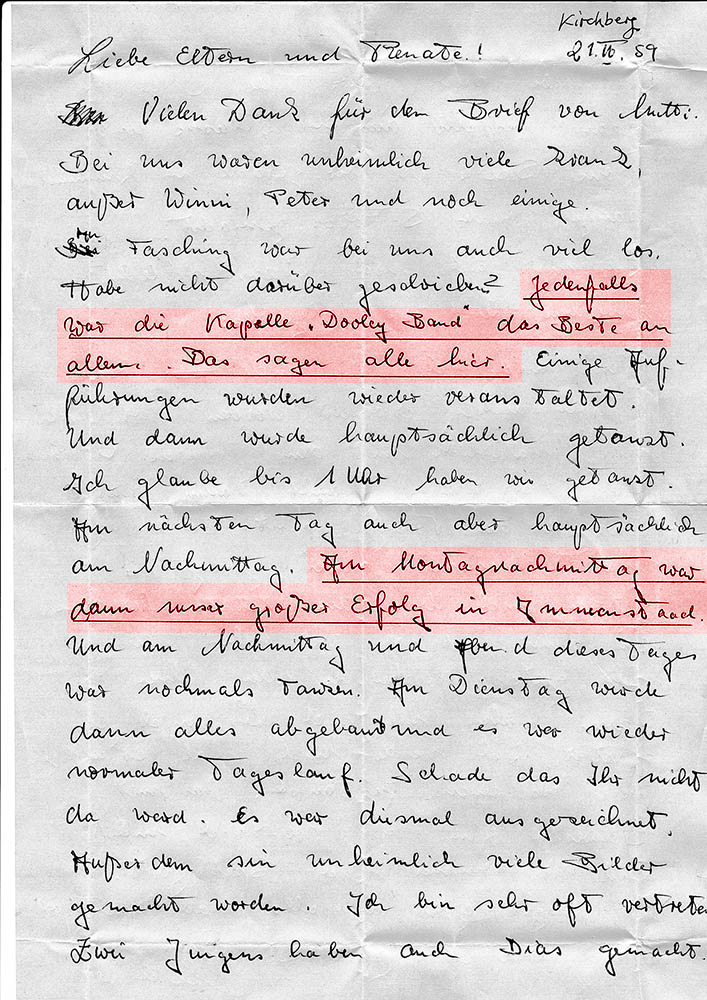 Kirchberg
21.II.59
Liebe Eltern und Renate!
Vielen Dank für den Brief von Mutti.
Bei uns waren unheimlich viele krank,
außer Winni, Peter und noch einige.
Am Fasching war bei uns auch viel los.
Habe nicht darüber geschrieben? Jedenfalls
war die Kapelle "Dooley Band" das Beste an
allem. Das sagen alle hier. Einige Auf-
führungen wurden wieder veranstaltet.
Und dann wurde hauptsächlich getanzt.
Ich glaube bis 1 Uhr haben wir getanzt.
Am nächsten Tag auch aber hauptsächlich
am Nachmittag. Am Montagnachmittag war
dann unser großer Erfolg in Immenstaad.
Und am Nachmittag und Abend dieses Tages
war nochmals Tanzen. Am Dienstag wurde
dann alles abgebaut und es war wieder
normaler Tageslauf. Schade das Ihr nicht
da ward. Es war diesmal ausgezeichnet.
Außerdem sin unheimlich viele Bilder
gemacht worden. Ich bin sehr oft vertreten
Zwei Jungens haben auch Dias gemacht.